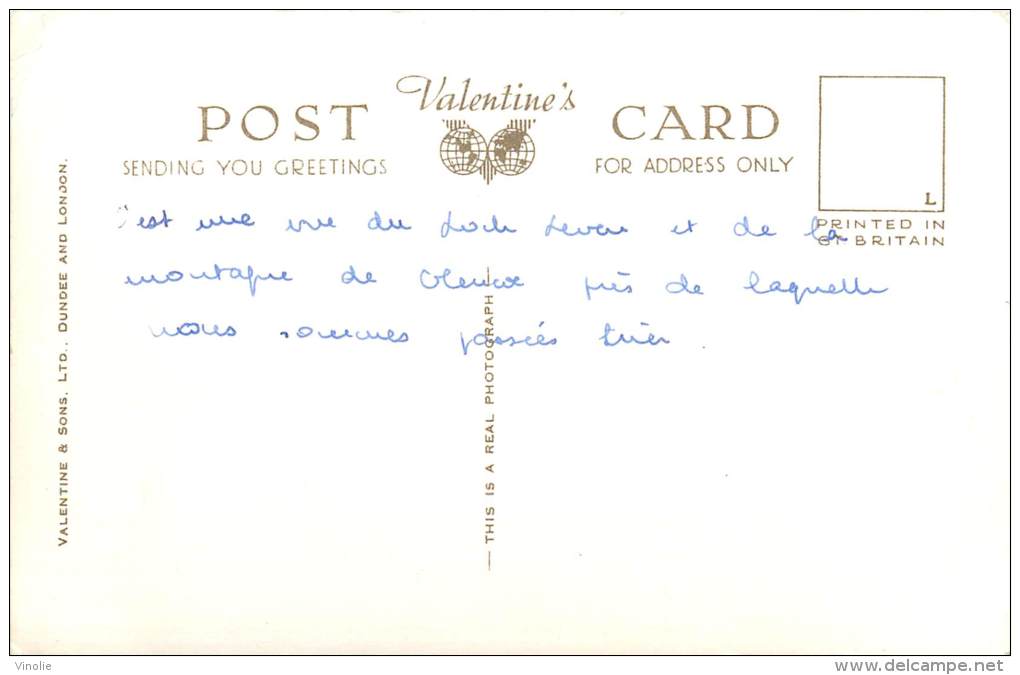 Valentine's
POST CARD
SENDING YOU GREETINGS
FOR ADDRESS ONLY
L
PRINTED IN
GT BRITAIN
C'est une vue du Loch Leven et de la
montagne de Glencoe près de laquelle
nous sommes passés hier.
VALENTINE & SONS, LTD., DUNDEE AND LONDON.
— THIS IS A REAL PHOTOGRAPH —
Vinolie
www.delcampe.net